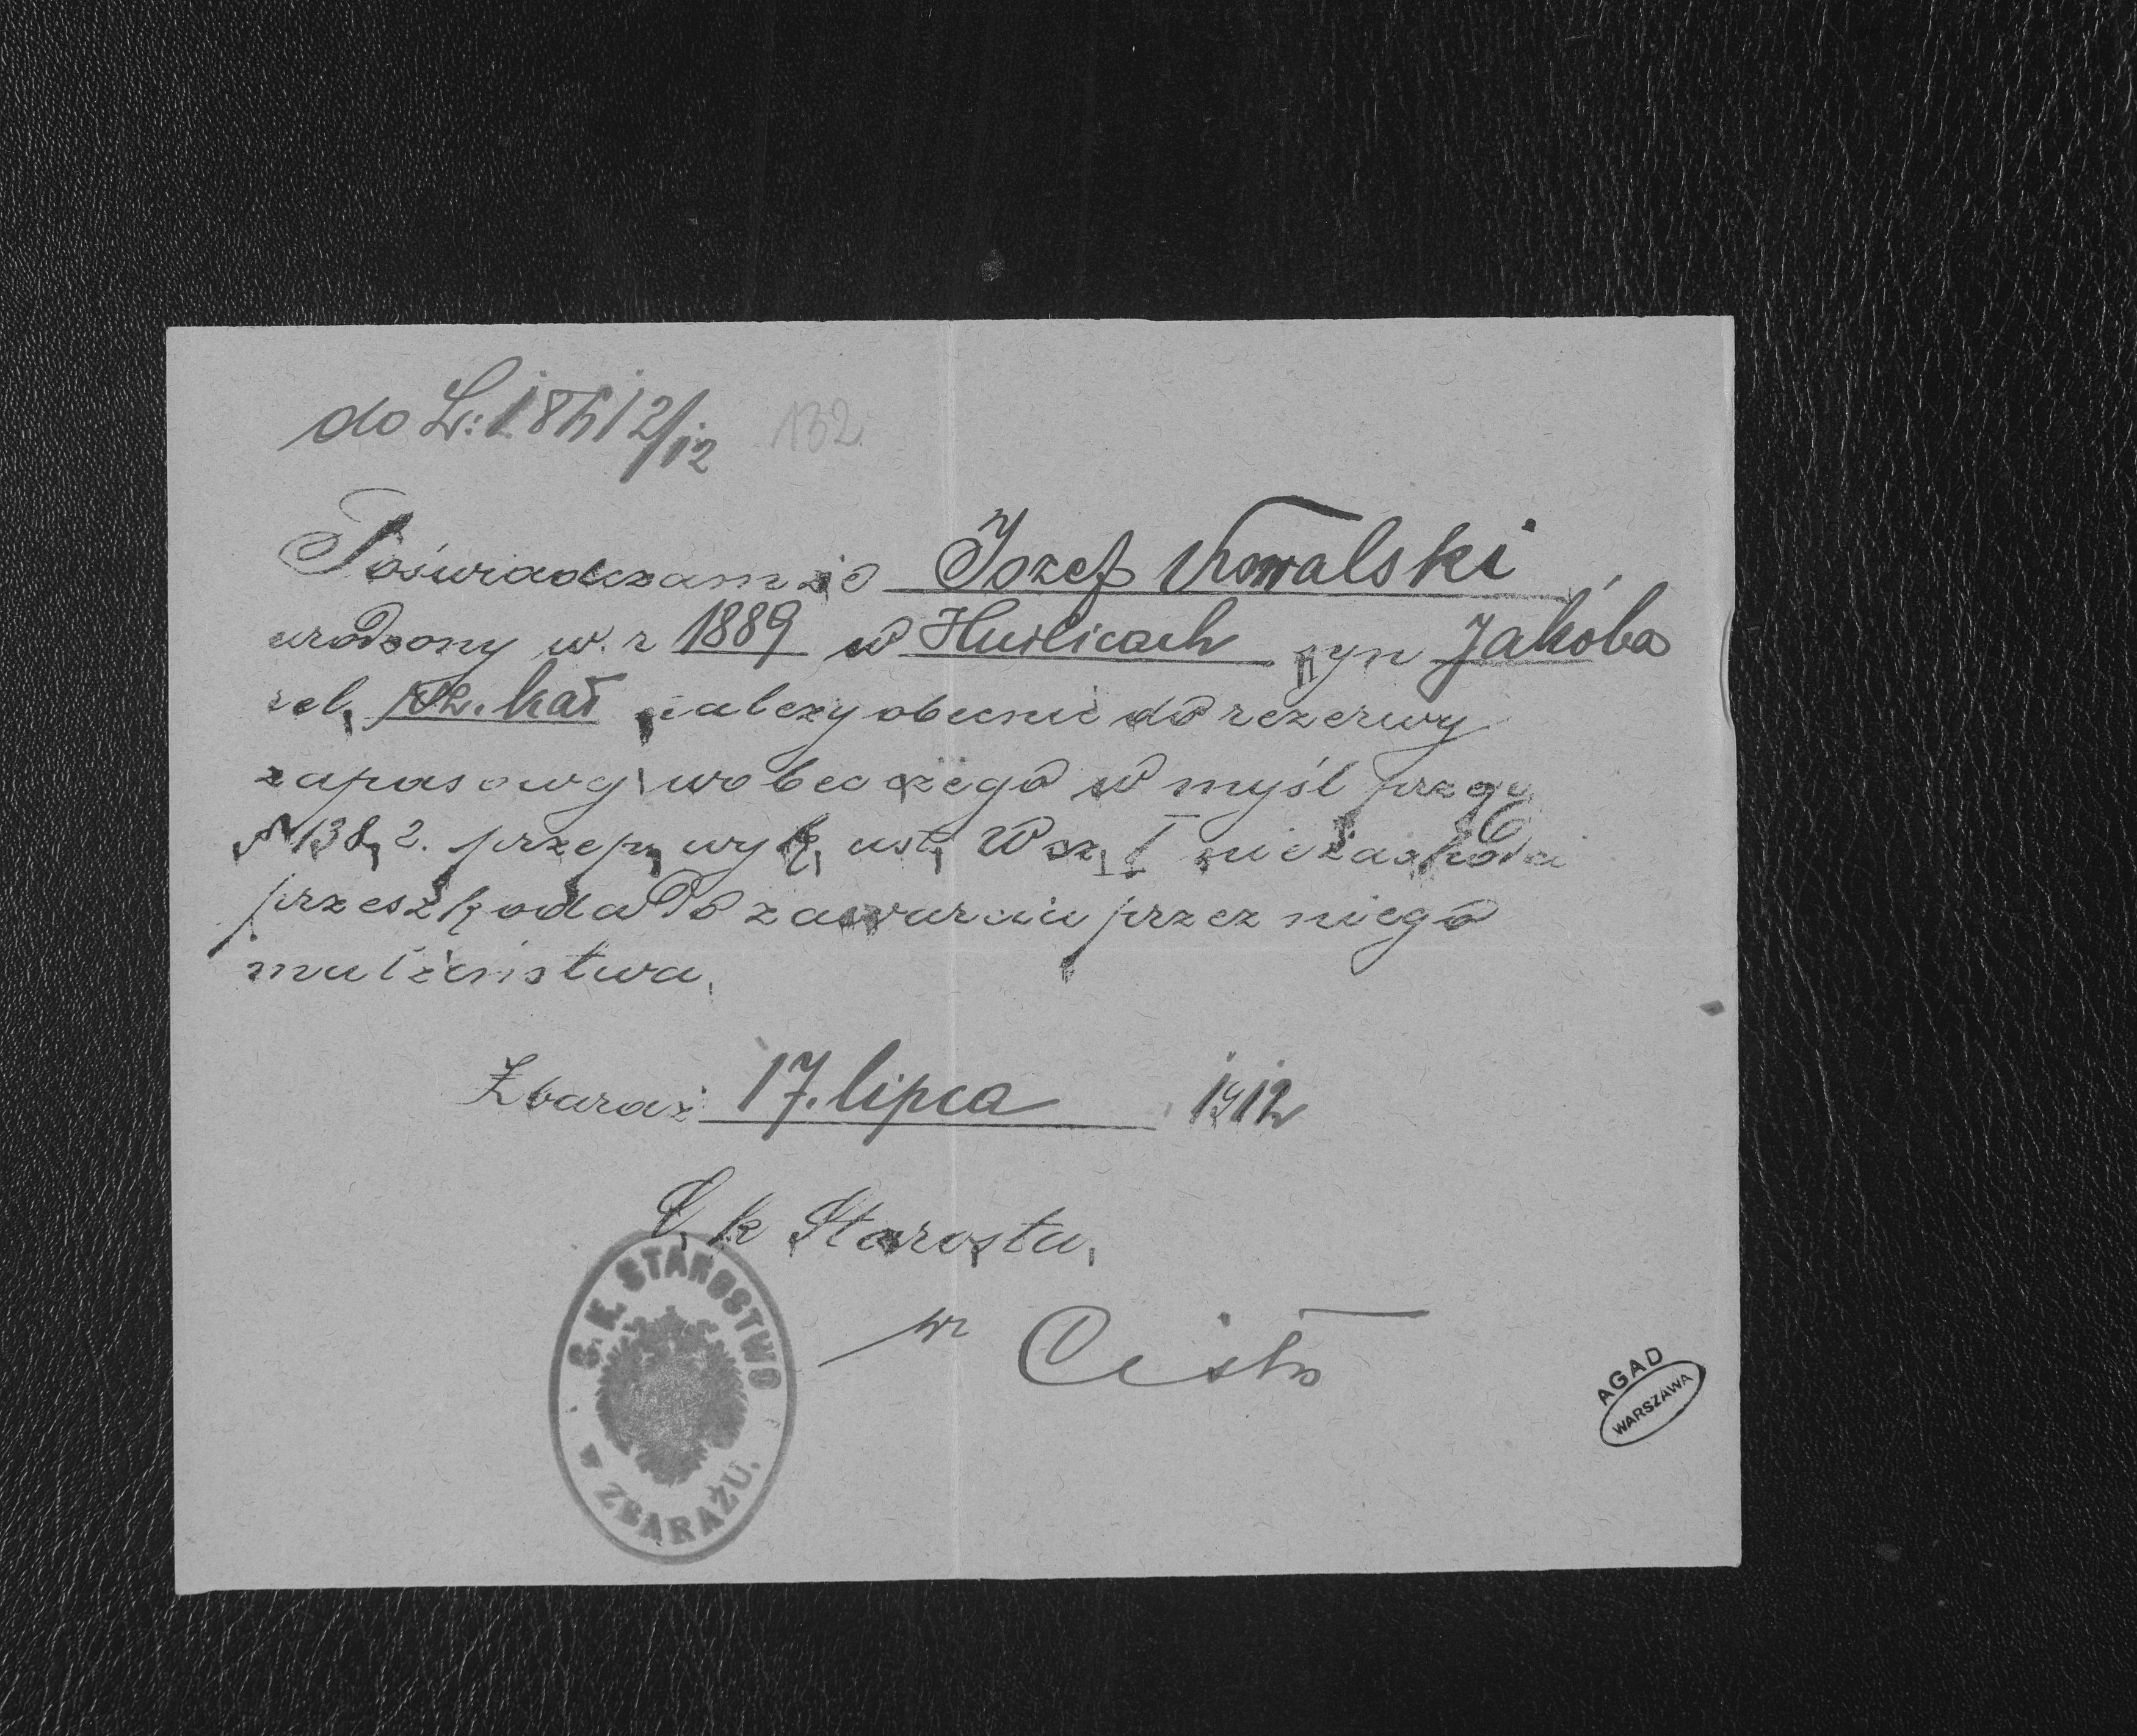 do L: 18612/12 132
Poświadczam że Jozef Kowalski,
urodzony w. r 1889 w Hnilicach syn Jakóba
rel, rz. kat należy obecnie do rezerwy
zapasowej wobec czego w myśl
§ 138, 2. przep, wyk, ust, Wsz, I nie zachodzi
przeszkoda do zawarcia przez niego
małżeństwa,
Zbaraż 17. lipca 1912
C, k Starosta,
C. K. STAROSTWO
w ZBARAŻU.
AGAD
WARSZAWA